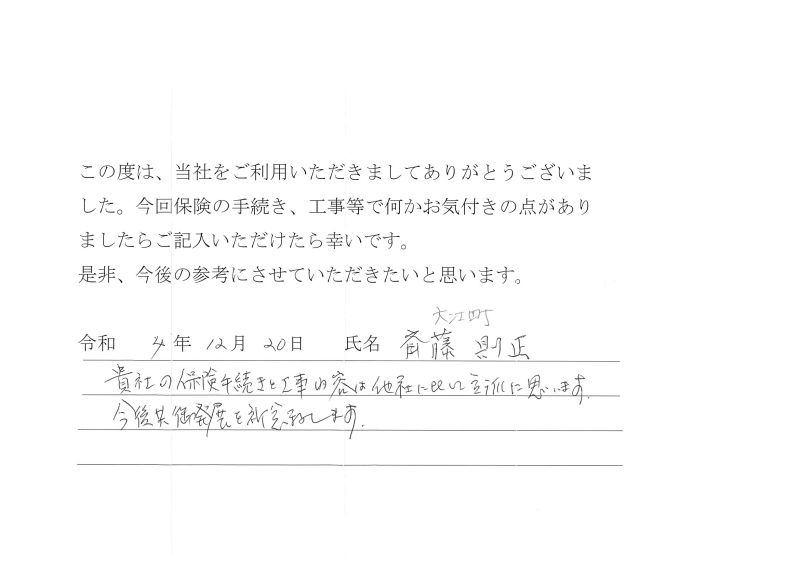 この度は、当社をご利用いただきましてありがとうございま
した。今回保険の手続き、工事等で何かお気付きの点があり
ましたらご記入いただけたら幸いです。
是非、今後の参考にさせていただきたいと思います。
大江町
令和 4年 12月 20日 氏名 斉藤 則正
貴社の保険手続きと工事内容は他社に比し立派に思います.
今後共御発展を祈念致します.